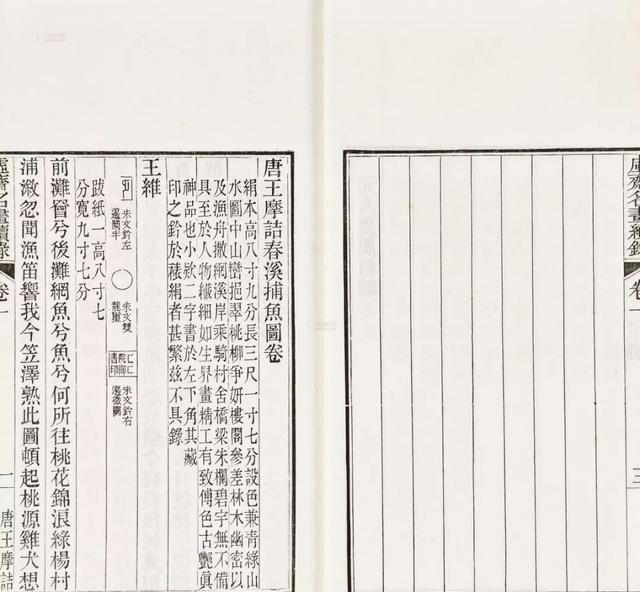 虛齋名畫續錄
卷一
三
唐王摩詰春溪捕魚圖卷
絹本高八寸九分長三尺一寸七分設色兼青綠山
水圖中山巒挹翠桃柳爭妍樓閣參差林木幽密以
及漁舟撒網溪岸乘騎村舍橋梁朱欄碧宇無不備
具至於人物纖細如生界畫精工有致傅色古艷眞
神品也小欵二字書於左下角其藏
印之鈐於絹者甚繁茲不具錄
王維
朱文鈐左
邊闕半
朱文雙
龍璽
朱文鈐右
邊微闕
跋紙一高八寸七
分寬九寸七分
前灘罾兮後灘網魚兮魚兮何所往桃花錦浪綠楊村
浦溆忽聞漁笛響我今笠澤熟此圖頓起桃源雞犬想
虛齋名畫續錄
卷一
一
唐王摩詰